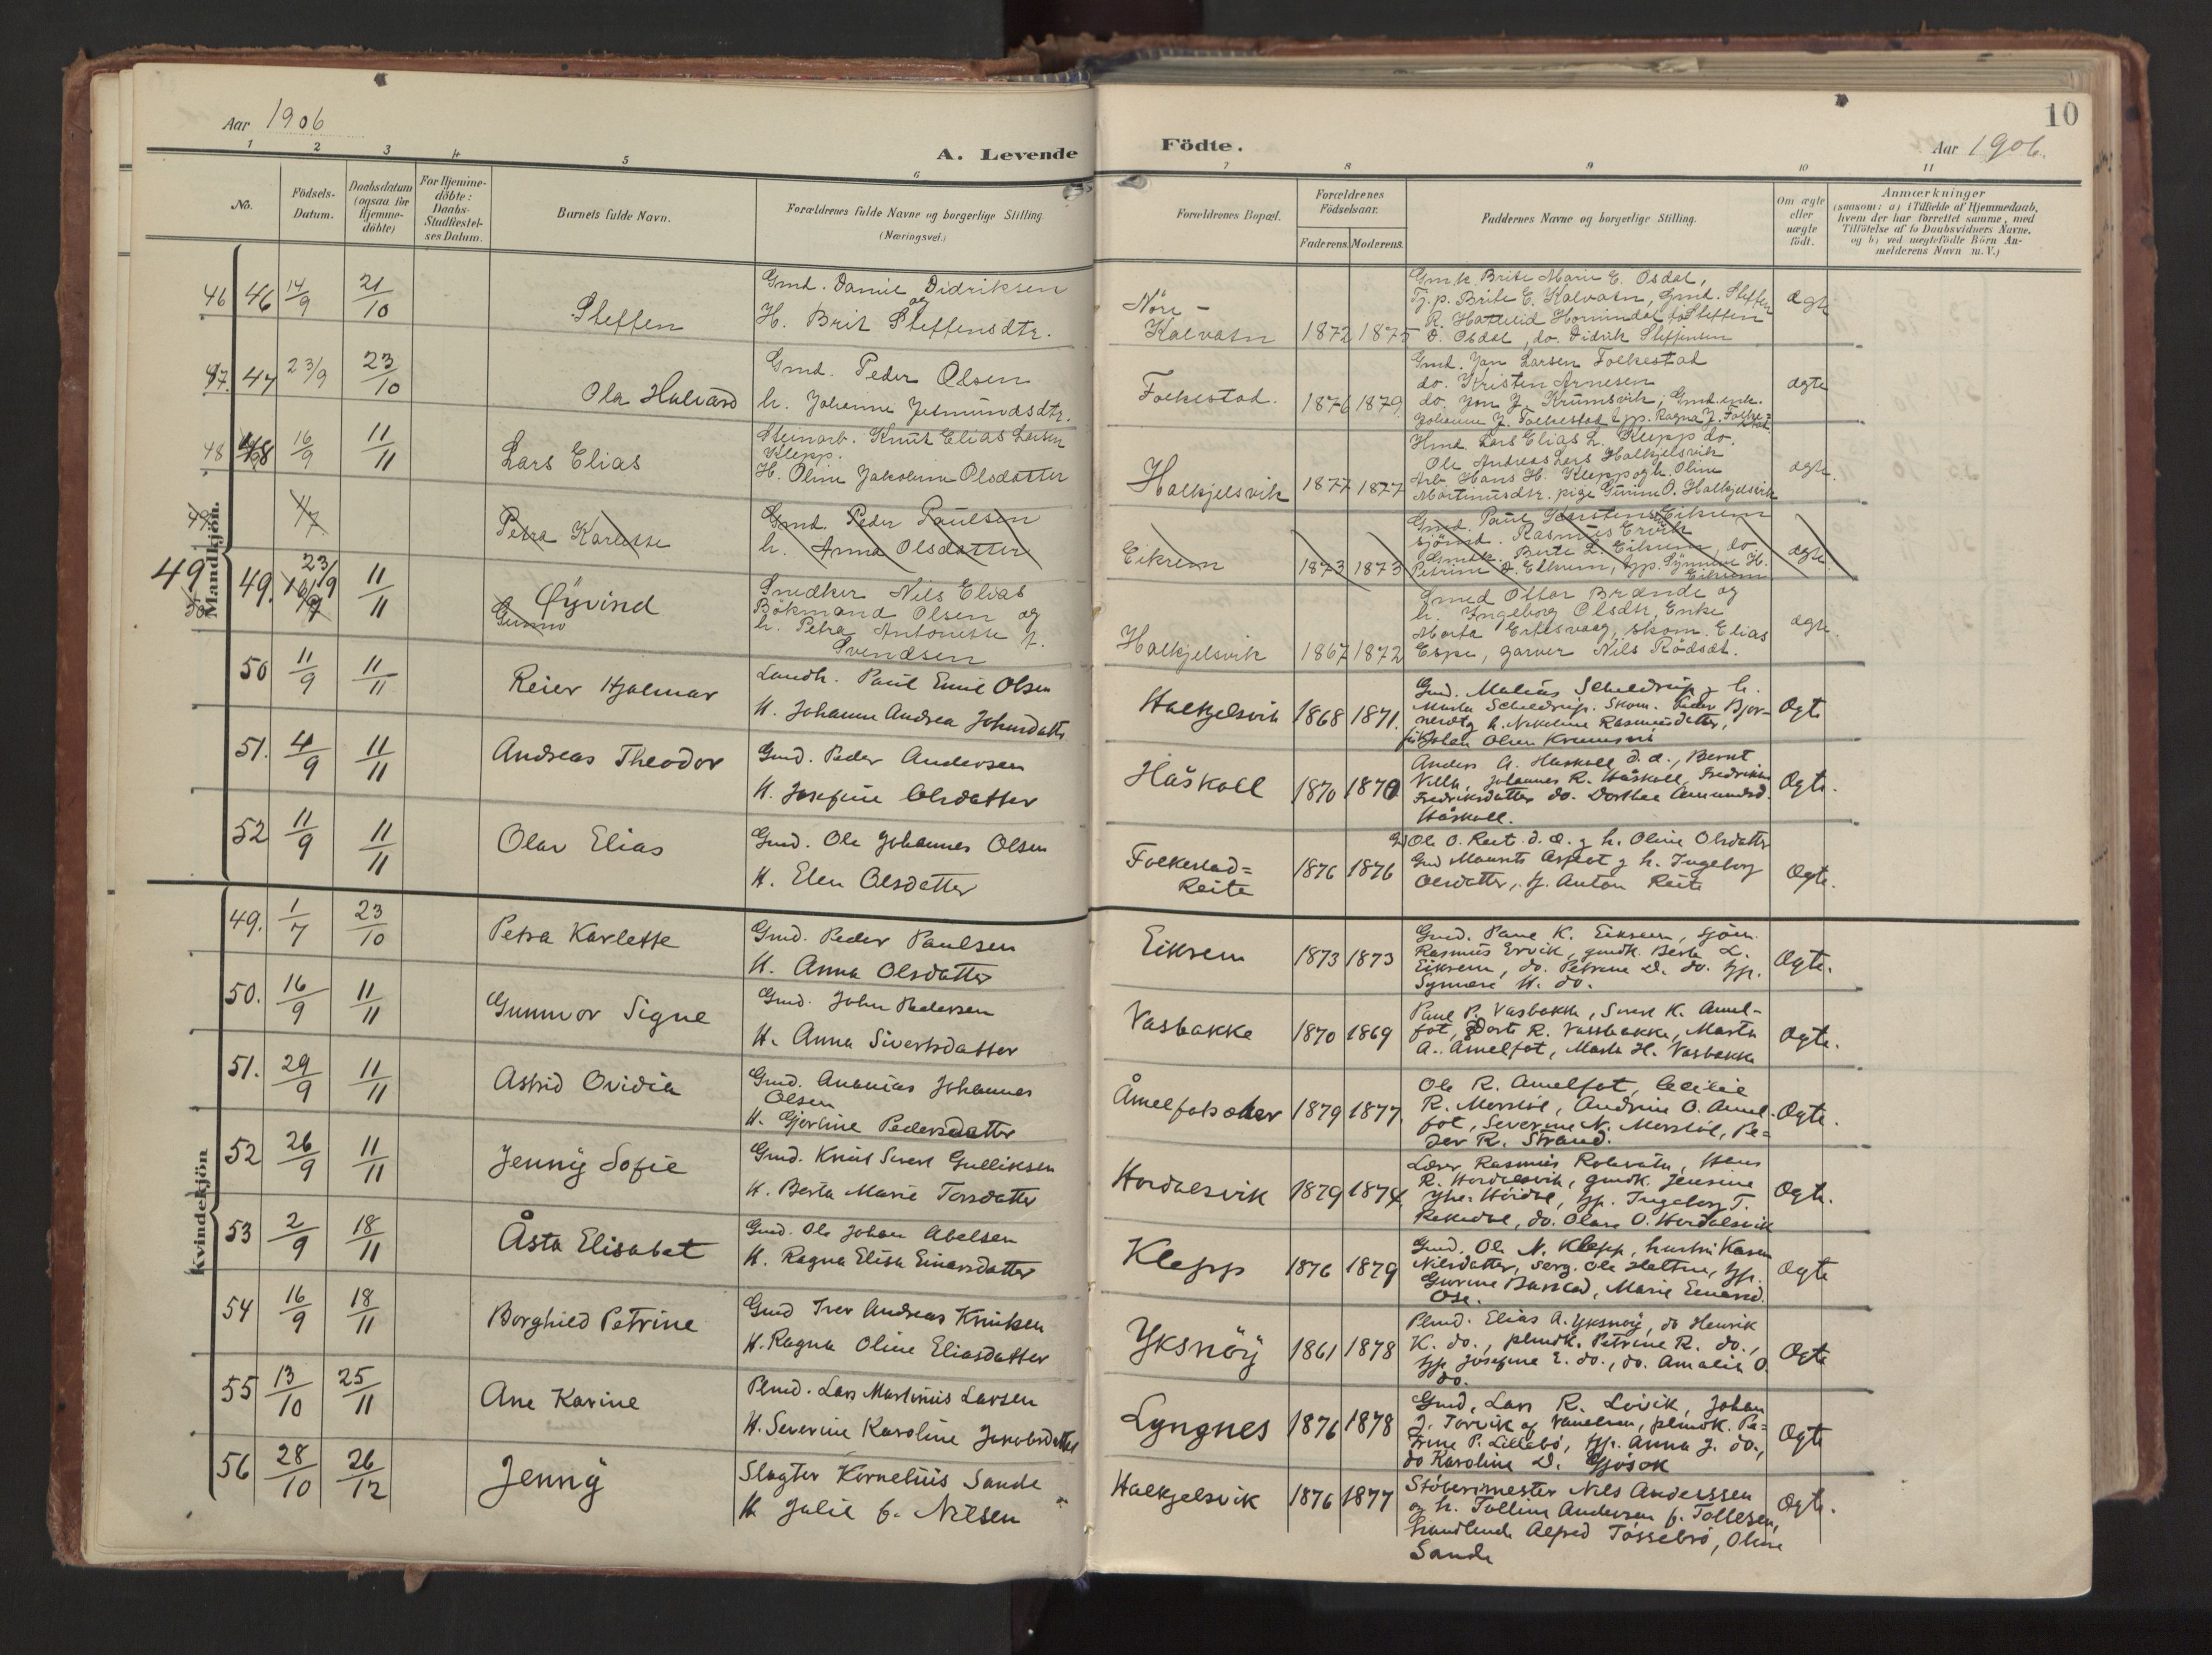 Aar 1906
A. Levende
Födte.
Aar 1906.
10
1 2 3 4 5 6
7 8 9 10 11
No.
Födsels-
Datum.
Daabsdatum
(ogsaa for
Hjemme-
döbte)
For Hjemme-
döbte:
Daabs-
Stadfæstel-
ses Datum.
Barnets fulde Navn.
Forældrenes fulde Navne og borgerlige Stilling.
(Næringsvei.)
Forældrenes Bopæl.
Forældrenes
Födselsaar.
Faderens. Moderens.
Faddernes Navne og borgerlige Stilling.
Om ægte
eller
uægte
født.
Anmærkninger
(saasom: a) i Tilfælde af Hjemmedaab,
hvem der har forrettet samme, med
Tilföielse af to Daabsvidners Navne,
og b) ved uægtefödte Börn An-
melderens Navn m. V.)
Mandkjön.
46 46 14/9 21/10 Steffen
Gmd. Daniel Didriksen
og
H. Brit Steffensdtr.
Nore -
Kalvatn 1872 1875
Gmk. Brite Marie E. Osdal,
Tj. p. Brite E. Kalvatn, Gmd. Steffen
R. Hornindal, Steffen
D. Osdal, do. Didrik Steffensen
ægte
47. 47 23/9 23/10 Ola Halvard
Gmd. Peder Olsen
h. Johanne Jetmundsdtr.
Folkestad. 1876 1879
Gmd. Jon Larsen Folkestad
do. Kristen Arnesen
do Jon J. Krumsvik, Gmd. enk.
Johanne J. Folkestad, tjp. Ragna J. Folkestad
ægte
48 48 16/9 11/11 Lars Elias
Steinarb. Knut Elias Larsen
Klepp.
H. Oline Jakobine Olsdatter
Halkjelsvik 1877 1877
Hmd. Lars Elias L. Klepp do.
Ole Andreas Lars Halkjelsvik
Arb. Hans H. Klepp og h. Oline
Martinusdtr. pige Gurine O. Halkjelsvik
ægte.
49. 1/7 Petra Karlette
Gmd. Peder Paulsen
h. Anna Olsdatter
Eikrem 1873 1873
Gmd. Paul Karstens Eikrem
sjömd. Rasmus Ervik
Gmdk. Berte L. Eikrem, do
Petrine D. Eikrem, tjp. Synnöve H.
Eikrem
ægte
49 49. 23/9 11/11 Öyvind
Gunno
Smedker Nils Elias
Bökmand Olsen og
h. Petra Antonette f.
Svendsen
Halkjelsvik 1867 1872
Smed Ottar Brænde og
h. Ingeborg Olsdtr, Enke
Marta Ertesvaag, skom. Elias
Espe, garver Nils Rödset.
ægte.
50 11/9 11/11 Reier Hjalmar
Landh. Paul Emil Olsen
H. Johanne Andrea Johnsdatter
Halkjelsvik 1868 1871.
Gmd. Matias Scheldrup g h.
Marta Scheldrup. Skom. Peder Bjør-
nerdt g h. Nikoline Rasmusdatter,
Johan Olsen Krumsvik
Ægte
51. 4/9 11/11 Andreas Theodor
Gmd. Peder Andersen
H. Josefine Olsdatter
Håskoll 1870 1870
Anders A. Haskoll d. æ., Bernt
Villa, Johannes R. Håskoll, Fredrikke
Fredriksdatter do. Dorthea Amundsd.
Håskoll.
Ægte.
52 11/9 11/11 Olav Elias
Gmd. Ole Johannes Olsen
H. Elen Olsdatter
Folkestad=
Reite 1876 1876
Ole O. Reit d. æ. g h. Oline Olsdatter
Gmd Maurits Asplot g h. Ingeborg
Olsdatter, tj. Anton Reite
Ægte.
Kvindekjön
49. 1/7 23/10 Petra Karlette
Gmd. Peder Paulsen
H. Anna Olsdatter
Eikrem 1873 1873
Gmd. Paul K. Eikrem, sjöm.
Rasmus Ervik, gmdk. Berte L.
Eikrem, do. Petrine D. do. tjp.
Synnöve H. do.
Ægte.
50. 16/9 11/11 Gunnvor Signe
Gmd. John Pedersen
H. Anna Sivertsdatter
Vasbakke 1870 1869
Paul P. Vasbakke, Sivert K. Aamel-
fot, Dorte R. Vassbakke, Marta
A. Aamelfot, Marta H. Vasbakke
Ægte.
51. 29/9 11/11 Astrid Ovidia
Gmd. Ananias Johannes
Olsen
H. Gjertine Pedersdatter
Åmelfot 1879 1877.
Ole R. Aamelfot, Cecilie
R. Mersköl, Andrine O. Aamel-
fot, Severine N. Mersköl, Pe=
der R. Strand.
Ægte.
52 26/9 11/11 Jenny Sofie
Gmd. Knut Sivert Gulliksen
H. Berta Marie Torsdatter
Hordalsvik 1879 1874.
Lærer Rasmus Rotevatn, Hans
R. Hordalsvik, gmdk. Jensine
tjp. Ingeborg T.
Rekkedal, do. Olava O. Hordalsvik
Ægte.
53 2/9 18/11 Åsta Elisabet
Gmd. Ole Johan Abelsen
H. Ragna Elisa Einarsdatter
Klepp 1876 1879
Gmd. Ole N. Klepp, hustru Karen
Nilsdatter, serg. Ole Haltun, tjp.
Gurine Barstad, Marie Einarsd.
Ose.
Ægte
54 16/9 18/11 Borghild Petrine
Gmd Iver Andreas Knutsen
H. Ragna Oline Eliasdatter
Yksnöy 1861 1878
Plmd. Elias A. Yksnöy, do Henrik
K. do., plmdk. Petrine R. do.,
tjp Josefine E. do., do. Amalia O.
do.
Ægte
55 13/10 25/11 Ane Karine
Plmd. Lars Martinus Larsen
H. Severine Karoline Jakobsdatter
Lyngnes 1876 1878
Gmd. Lars R. Lövik, Johan
J. Torvik af Vanelven, plmdk. Pe=
trine P. Lillebö, tjp. Anna J. do.,
do Karoline D. Gjösok
Ægte
56 28/10 26/12 Jenny
Slagter Kornelius Sande
H Julie f. Nilsen
Halkjelsvik 1876 1877
Stöberimester Nils Anderssen
og h. Tolline Andersen f. Tollesen,
handlende Alfred Tössebrö, Oline
Sande
Ægte.